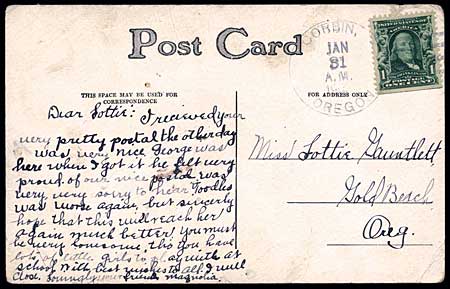 Post Card
CORBIN,
JAN
31
A.M.
OREGON
THIS SPACE MAY BE USED FOR
CORRESPONDENCE
FOR ADDRESS ONLY
Dear Lottie: I received your
very pretty postal the other day
was very nice George was
here when I got it he felt very
proud of our nice postal was
very very sorry to hear Toodles
was worse again, but sincerly
hope that this will reach her
again much better. You must
be very lonesome, tho you have
lots of little girls to play with at
school With best wishes to all I will
close. Lovingly your friend Magnolia.
Miss Lottie Gauntlett,
Gold Beach,
Oreg.